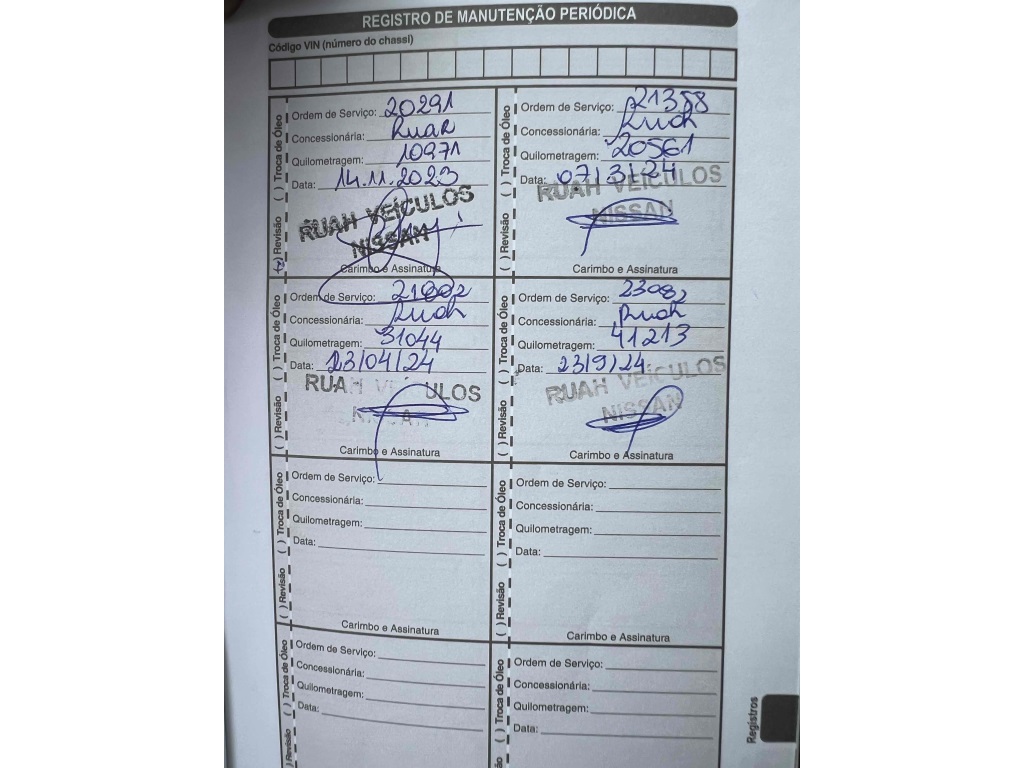 REGISTRO DE MANUTENÇÃO PERIÓDICA
Código VIN (número do chassi)
( ) Troca de Óleo
(x) Revisão
Ordem de Serviço: 20291
Concessionária: Ruah
Quilometragem: 10971
Data: 14.11.2023
RUAH VEÍCULOS
NISSAN
Carimbo e Assinatura
( ) Troca de Óleo
( ) Revisão
Ordem de Serviço: 21358
Concessionária: Ruah
Quilometragem: 20561
Data: 07/3/24
RUAH VEÍCULOS
NISSAN
Carimbo e Assinatura
( ) Troca de Óleo
( ) Revisão
Ordem de Serviço:
Concessionária: Ruah
Quilometragem: 31044
Data: 23/04/24
RUAH VEÍCULOS
NISSAN
Carimbo e Assinatura
( ) Troca de Óleo
( ) Revisão
Ordem de Serviço: 23082
Concessionária: Ruah
Quilometragem: 41213
Data: 23/9/24
RUAH VEÍCULOS
NISSAN
Carimbo e Assinatura
( ) Troca de Óleo
( ) Revisão
Ordem de Serviço:
Concessionária:
Quilometragem:
Data:
Carimbo e Assinatura
( ) Troca de Óleo
( ) Revisão
Ordem de Serviço:
Concessionária:
Quilometragem:
Data:
Carimbo e Assinatura
( ) Troca de Óleo
) Revisão
Ordem de Serviço:
Concessionária:
Quilometragem:
Data:
( ) Troca de Óleo
Ordem de Serviço:
Concessionária:
Quilometragem:
Data:
Registros